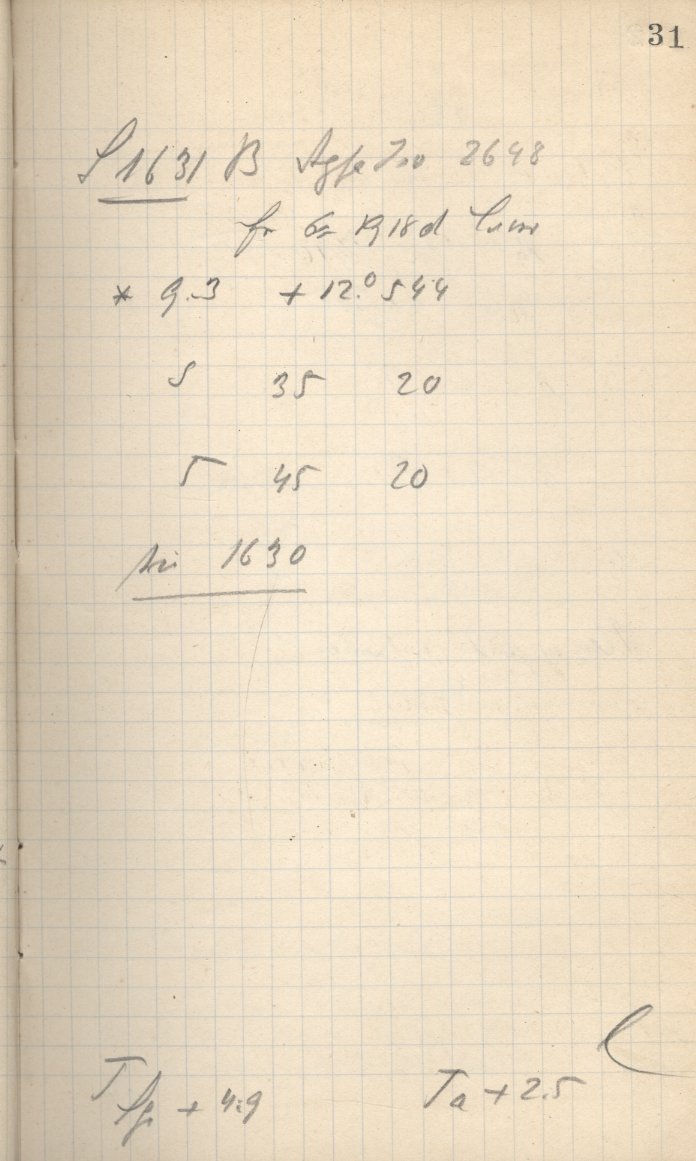 31
S 1631 B Agfa Iso 2648
für 6h 18d
* 9.3 + 12.° 544
S 35 20
T 45 20
1630
T Sp + 4.9 Ta + 2.5